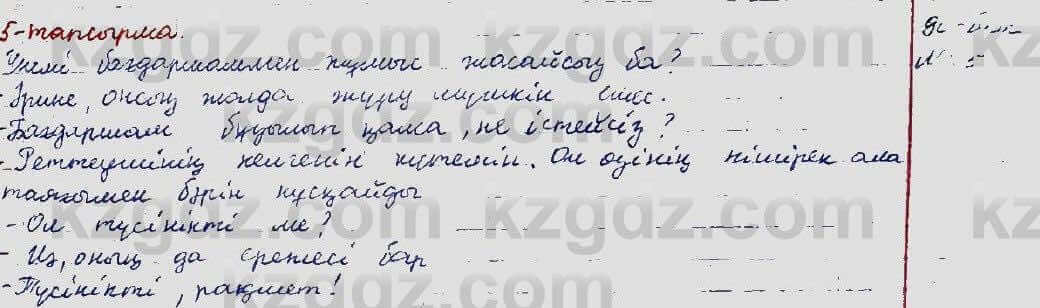 5-тапсырма.
Үнемі бағдаршаммен жұмыс жасайсың ба?
- Әрине, онсыз жолда жүру мүмкін емес.
- Бағдаршам бұзылып қалса, не істейсіз?
- Реттеушінің келгенін күтемін. Ол өзінің ала
таяғымен бәрін нұсқайды
- Ол түсінікті ме?
- Иә, оның да ережесі бар
- Түсінікті, рақмет!
kzgdz.com